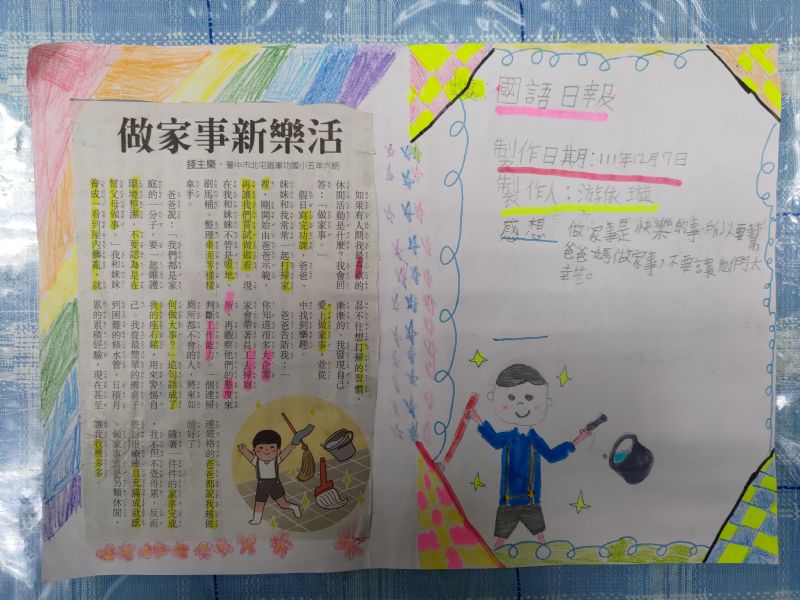 做家事新樂活
錢主樂‧臺中市北屯區軍功國小五年六班
如果有人問我最喜歡的
休閒活動是什麼?我會回
答:「做家事。」
假日寫完功課,爸爸、
妹妹和我常常一起打掃家
裡,剛開始由爸爸示範,
再讓我們嘗試做做看。現
在我和妹妹不管是吸地、
刷馬桶、整理桌面等等樣樣
拿手。
爸爸說:「我們都是家
庭的一分子,要一起維護
環境整潔,不要認為是在
幫父母做事。」我和妹妹
養成一看到屋內髒亂,就
忍不住想打掃的習慣,
漸漸的,我發現自己
愛上做家事,並從
中找到樂趣。
爸爸告訴我:「
你知道很多大企業
家會帶著員工去掃廁
所,再觀察他們的態度來
判斷工作能力。一個連掃
廁所都不會的人,將來如
何做大事?」這句話成了
我的座右銘,用來警惕自
己。我從最簡單的擦桌子
到困難的修水管,日積月
累的累積經驗,現在甚至
連嚴格的爸爸都說我越做
越好了。
隨著一件件的家事完成
,我不但不覺得累,反而
覺得很療癒且充滿成就感
。做家事真是另類休閒,
讓我樂趣多多
出處:國語日報
製作日期:111年12月7日
製作人:游依璇
感想 做家事是快樂的事,所以要幫
爸爸媽做家事,不要讓他們太
辛苦。